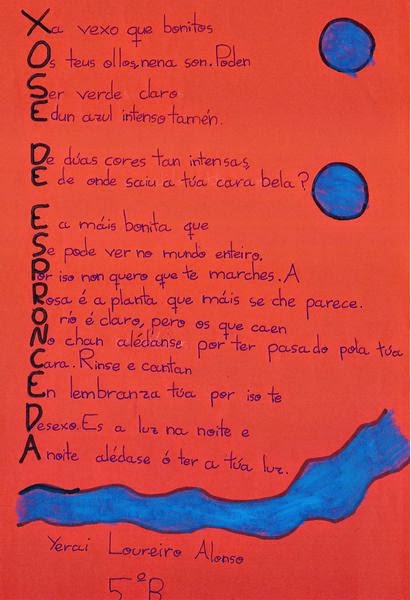 Xa vexo que bonitos
Os teus ollos, nena son. Poden
Ser verde claro
E dun azul intenso tamén.
De dúas cores tan intensas,
E de onde saiu a túa cara bela?
E a máis bonita que
Se pode ver no mundo enteiro,
Por iso non quero que te marches. A
Rosa é a planta que máis se che parece.
O río é claro, pero os que caen
No chan alédanse por ter pasado pola túa
Cara. Rinse e cantan
En lembranza túa por iso te
Desexo. Es a luz na noite e
A noite alédase ó ter a túa luz.
Yerai Loureiro Alonso
5ºB